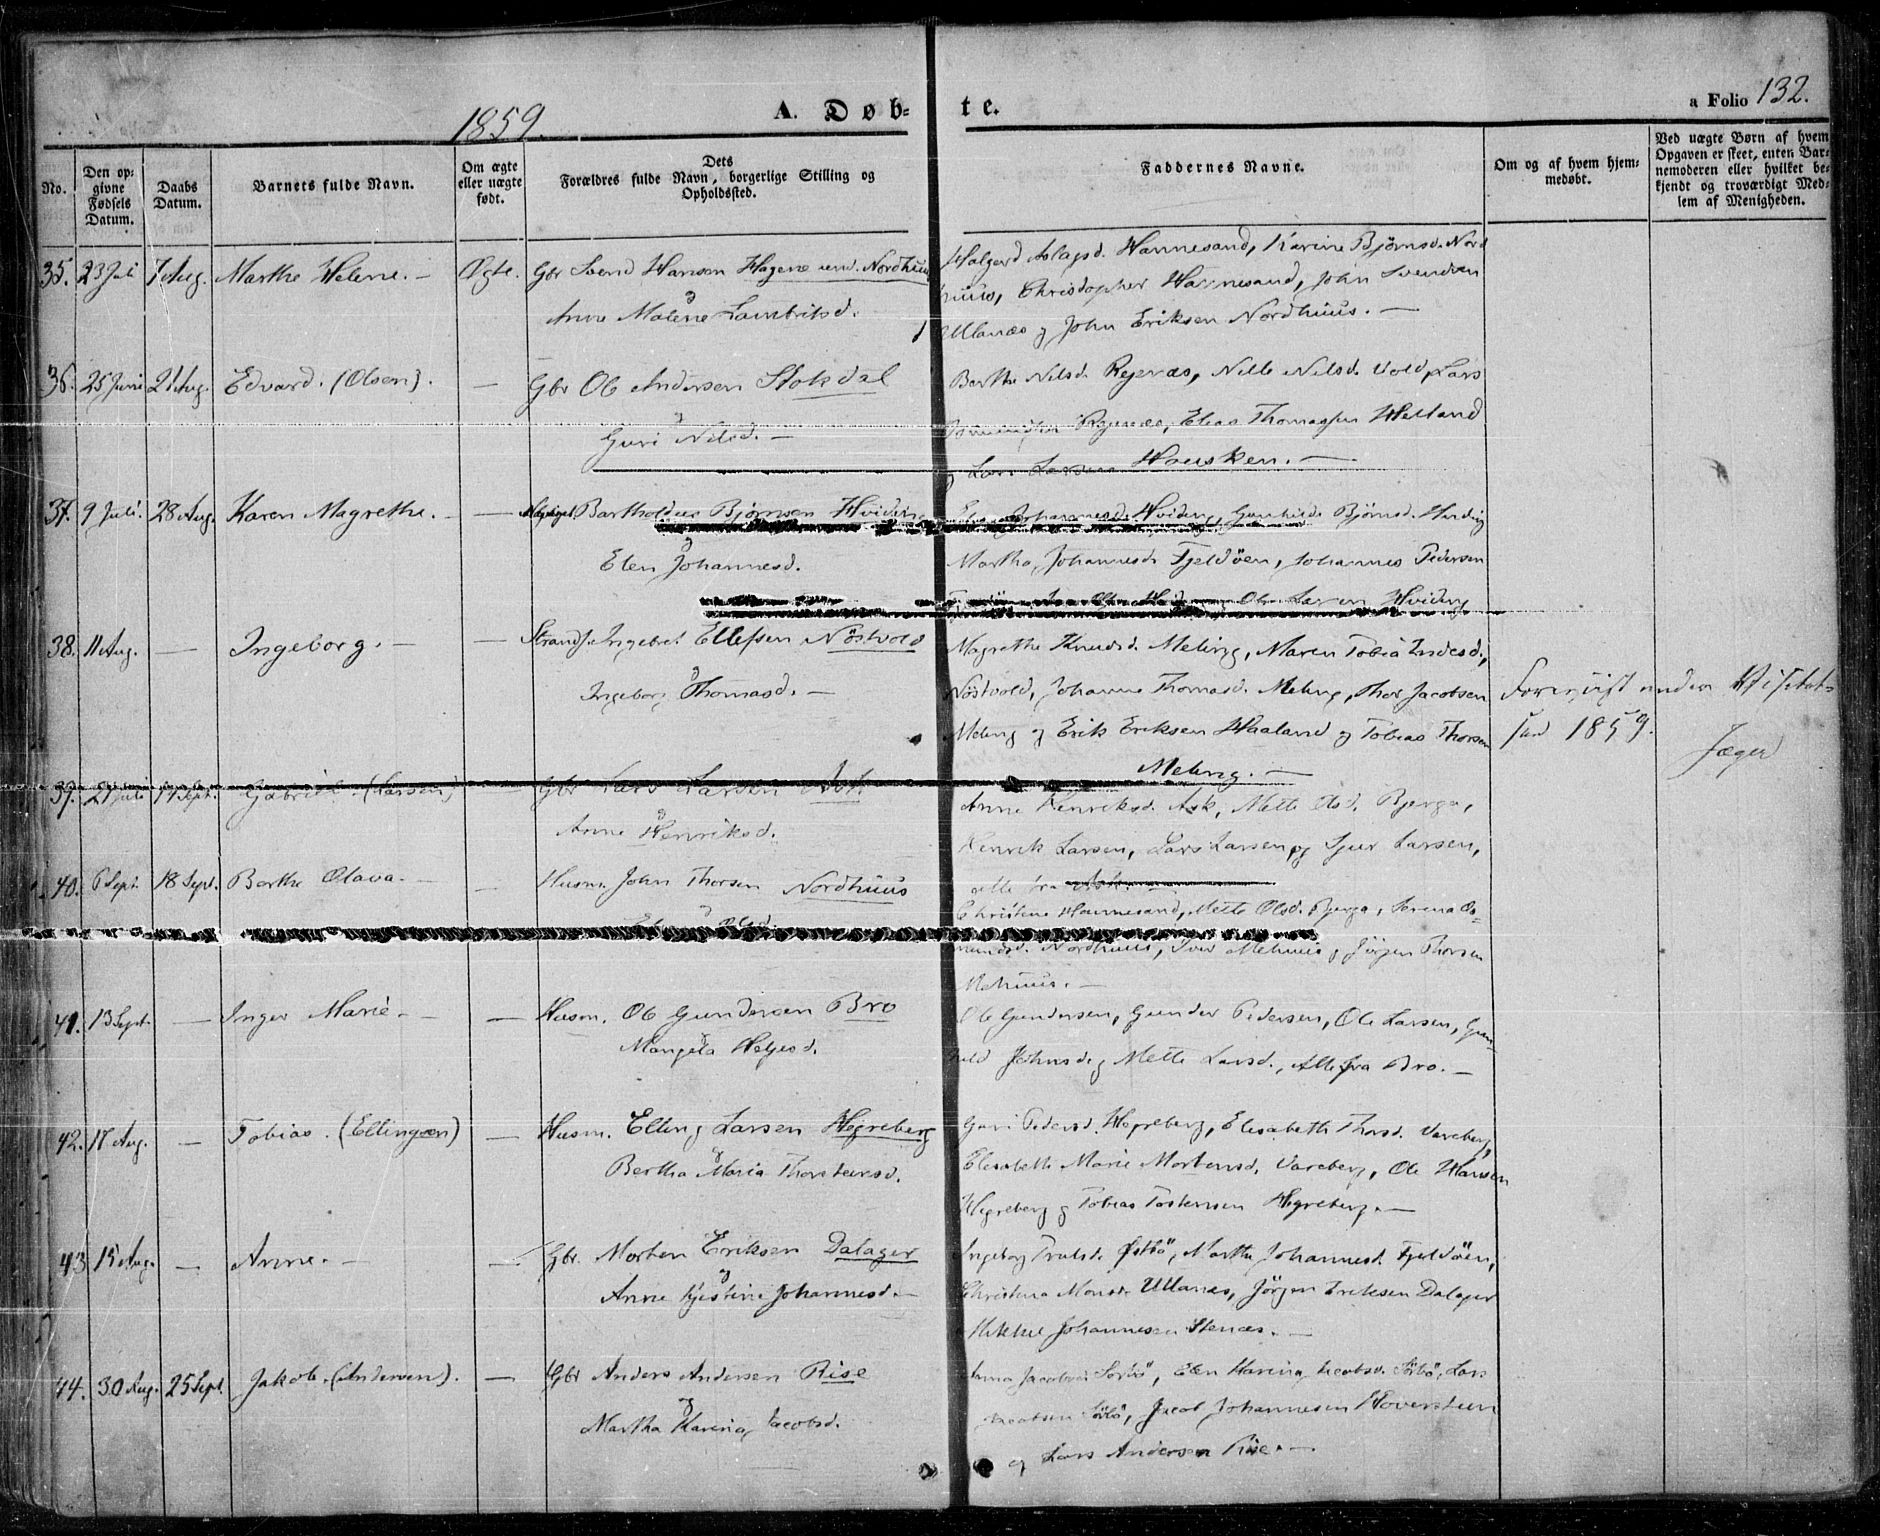 1859.
A. Døb-
te.
a Folio 132.
No.
Den op-
givne
Fødsels
Datum.
Daabs
Datum.
Barnets fulde Navn.
Om ægte
eller uægte
født.
Dets
Forældres fulde Navn, borgerlige Stilling og
Opholdssted.
Faddernes Navne.
Om og af hvem hjem-
medøbt.
Ved uægte Børn af hvem
Opgaven er skeet, enten Bar-
nemoderen eller hvilket be-
kjendt og troværdigt Med-
lem af Menigheden.
35. 23 Juli 7 Aug. Marthe Helene. — Ægte. Gbr Svend Hansen Hagene Nordhuus
og
Anne Malene Lambriksd.
Halgerd Aslagsd. Hannesand, Karine Bjørnsd. Nord
huus, Christopher Hannesand, John Svendsen
Ullanæs og John Eriksen Nordhuus. —
36. 25 Juni 21 Aug. Edvard. (Olsen). — Gbr Ole Andersen Stokdal
og
Guri Nilsd. —
Berthe Nilsd. Regnæs, Nille Nilsd. Vold, Lars
Regnæs, Elias Thomassen Helland
og Lars Larsen Housken. —
37. 9 Juli. 28 Aug. Karen Magrethe. — — Bartholdus Bjørnsen Hviding
og
Elen Johannesd.
Johannesd. Hviding, Gunhilde Bjørnsd. Hviding
Martha Johannesd. Fjeldøen, Johannes Pedersen
Ole Larsen Hviding
38. 11 Aug. — Ingeborg. — — Strands. Ingebret Ellefsen Nöstvold
og
Ingeborg Thomasd. —
Magrethe Knudsd. Meling, Maren Tobia Endesd.,
Nöstvold, Johanne Thomasd. Meling, Thor Jacobsen
Meling og Erik Eriksen Haaland og Tobias Thorsen
Meling. —
Forevist under Visitat-
sen 1859.
Jæger
39. 21 Juli 11 Sept. Gabriel. (Larsen) — Gbr Lars Larsen Ask
og
Anne Henriksd.
Anne Henriksd. Ask, Mette Olsd. Bjerga,
Henrik Larsen, Lars Larsen og Sjur Larsen,
alle fra Ask. —
40. 6 Sept. 18 Sept. Berthe Olava. — — Husm. John Thorsen Nordhuus
og
Olsd.
Christine Hannesand, Mette Olsd. Bjerga, Serena Os-
mundsd. Nordhuus, Iver Mehuus og Jörgen Thorsen
Mehuus. —
41. 13 Sept. — Inger Marie. — — Husm. Ole Gundersen Bro
og
Mangela Heljesd.
Ole Gundersen, Gunder Pedersen, Ole Larsen, Gun-
hild Johnsd. og Mette Larsd., Alle fra Bro. —
42. 17 Aug. — Tobias. (Ellingsen) — Husm. Elling Larsen Hegreberg
og
Bertha Maria Thorsteinsd.
Guri Pedersd. Hegreberg, Elisabeth Thorsd. Vareberg,
Elisabeth Marie Mortensd. Vareberg, Ole Hansen
Hegreberg og Tobias Tostensen Hegreberg. —
43 15 Aug. — Anne. — — Gbr. Morten Eriksen Dalager
og
Anne Kjestine Johannesd. —
Ingeborg Trulsd. Østbö, Martha Johannesd. Fjeldöen,
Christina Monsd. Ullanæs, Jörgen Eriksen Dalager
Mikkel Johannesen Stenæs. —
44. 30 Aug. 25 Sept. Jakob. (Andersen). — Gbr Anders Andersen Rise
og
Martha Karina Jacobsd.
Anna Jacobsd. Sörbö, Elen Karina Jacobsd. Sörbö, Lars
Jacobsen Sörbö, Jacob Johannesen Hoversteen
og Lars Andersen Rise. —